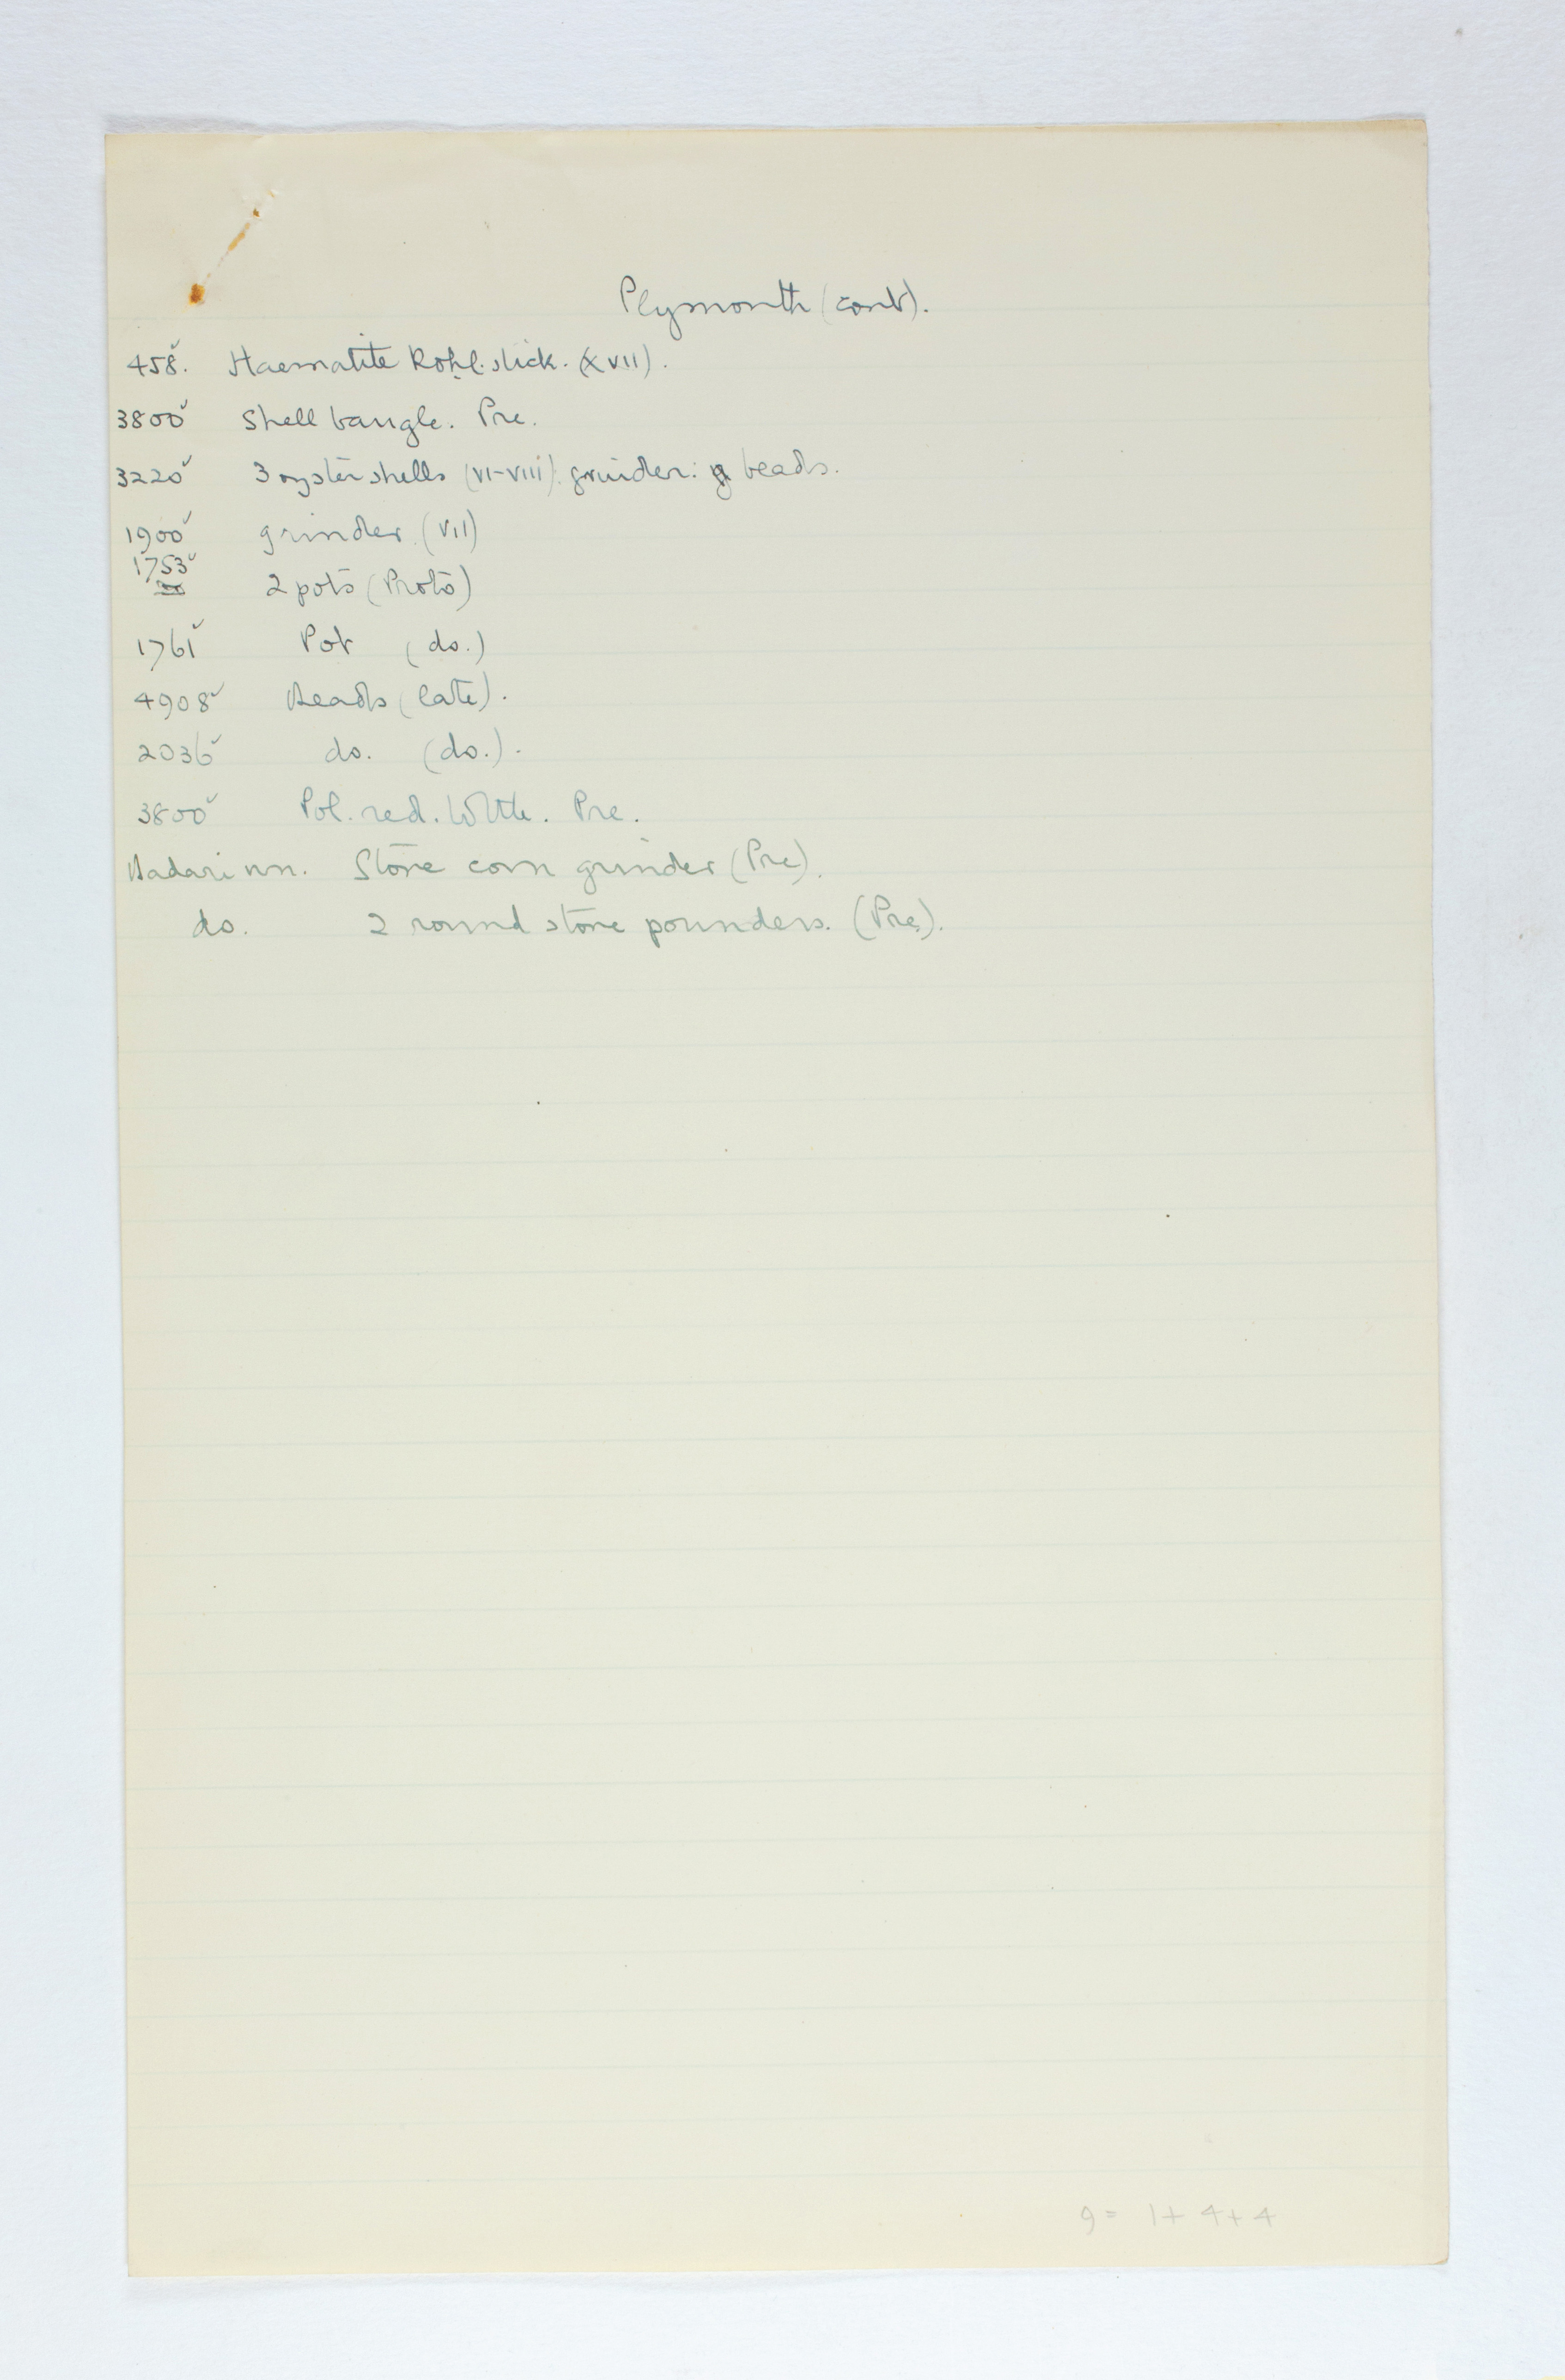 Plymouth (cont).
458. Haematite Kohl-stick. (XVII).
3800 Shell bangle. Pre.
3220 3 oyster shells (VI-VIII). grinder: beads.
1900 grinder (VII)
1753
2 pots (Proto)
1761 Pot (do.)
4908 Beads (late).
2036 do. (do.).
3800 Pol. red. bottle. Pre.
Badari nn. Stone corn grinder (Pre).
do. 2 round stone pounders. (Pre).
9 = 1 + 4 + 4